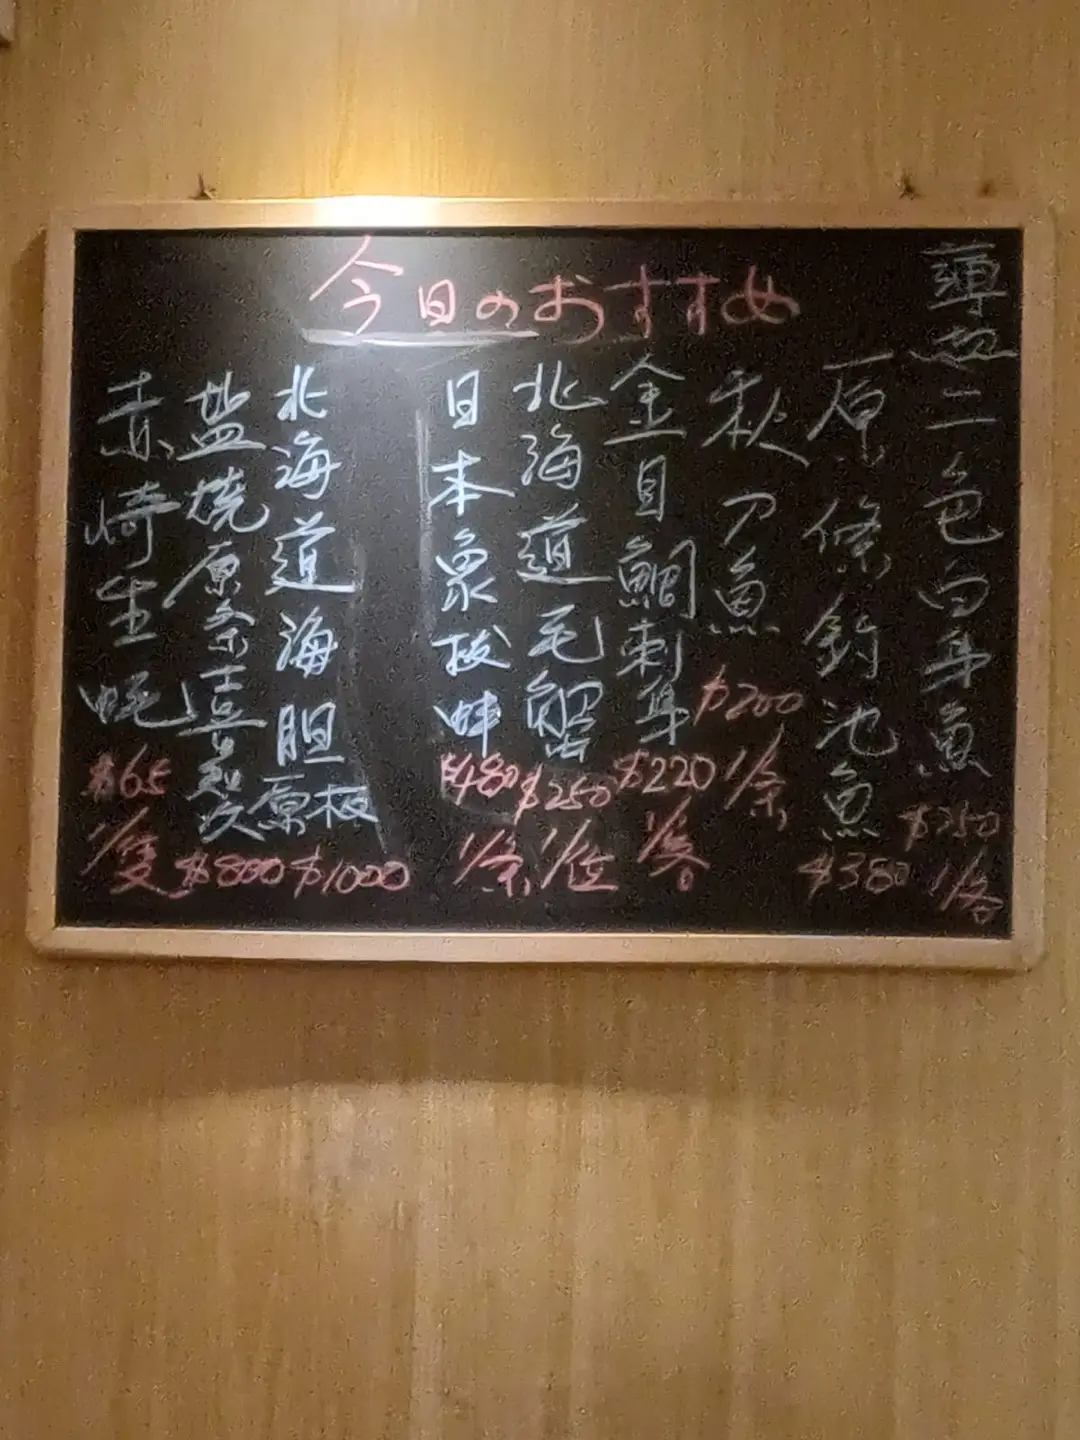 今日のおすすめ
薄切二色白身魚
$250
1/客
原條釣池魚
$380
秋刀魚
$200
1/条
金目鯛刺身
$220
1/客
北海道毛蟹
$250
1/位
日本象拔蚌
$480
1/条
北海道海胆
原板
$1000
盐燒原条喜知次
$800
赤崎生蚝
$65
1/隻